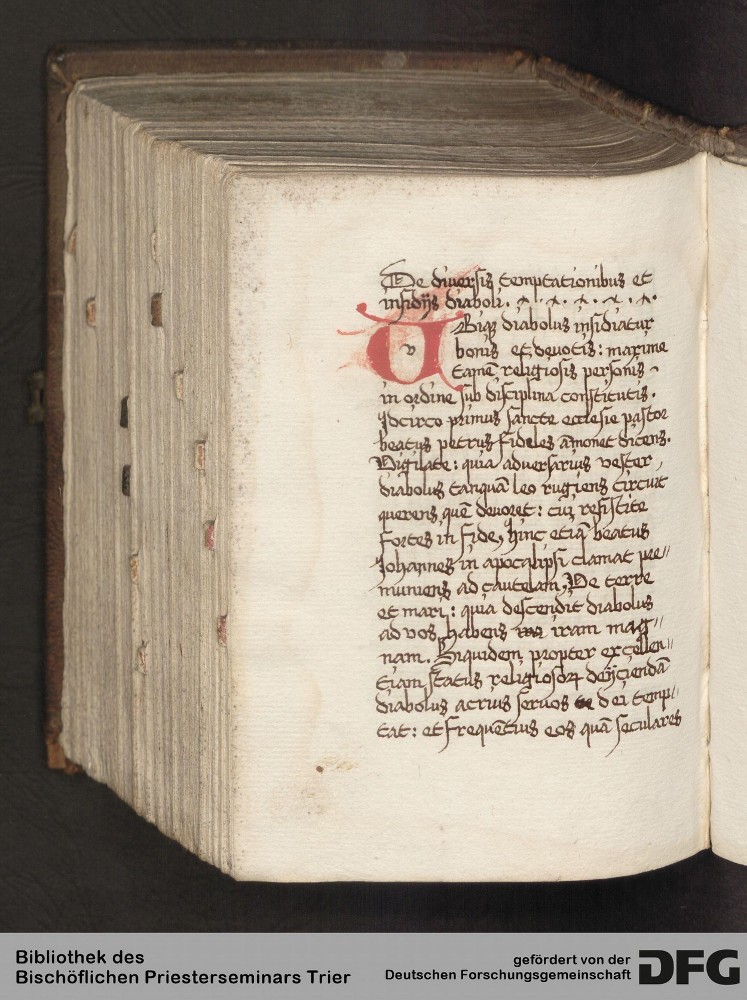 De diuersis temptationibus et
insidijs diaboli.
Vbiqꝫ diabolus insidiatur
v
bonis et deuotis: maxime
tamē religiosis personis
in ordine sub disciplina constitutis.
Jdcirco primus sancte ecclesie pastor
beatus petrus fideles āmonet dicens.
Vigilate: quia aduersarius vester,
diabolus tanquā leo rugiens circuit
querens quē deuoret: cui resistite
fortes in fide, hinc etiā beatus
Johannes in apocalipsi clamat pre//
muniens ad cautelam, Ve terre
et mari: quia descendit diabolus
ad vos habens iram mag//
nam. Siquidem propter excellen//
tiam status religiosoꝝ deijciendā
diabolus acrius seruos dei temp//
tat: et frequētius eos quā seculares
Bibliothek des
Bischöflichen Priesterseminars Trier
gefördert von der
Deutschen Forschungsgemeinschaft
DFG